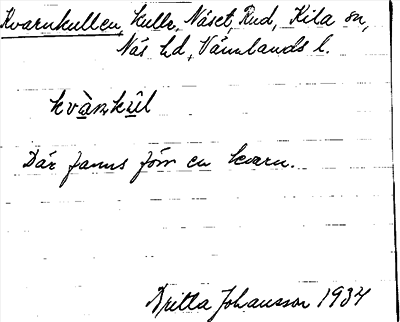 Kvarnkullen, kulle, Näset, Rud, Kila sn,
Näs hd, Värmlands l.
kvànkûl
Där fanns förr en kvarn.
Britta Johansson 1934